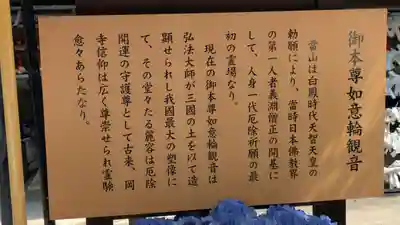 御本尊如意輪観音
当山は白鳳時代天智天皇の
勅願により、当時日本佛教界
の第一人者義淵僧正の開基に
して、人身一代厄除祈願の最
初の霊場なり。
現在の御本尊如意輪観音は
弘法大師が三國の土を以て造
顕せられし我國最大の塑像に
て、その堂々たる麗容は厄除
開運の守護尊として古来、岡
寺信仰は広く尊崇せられ霊験
愈々あらたなり。